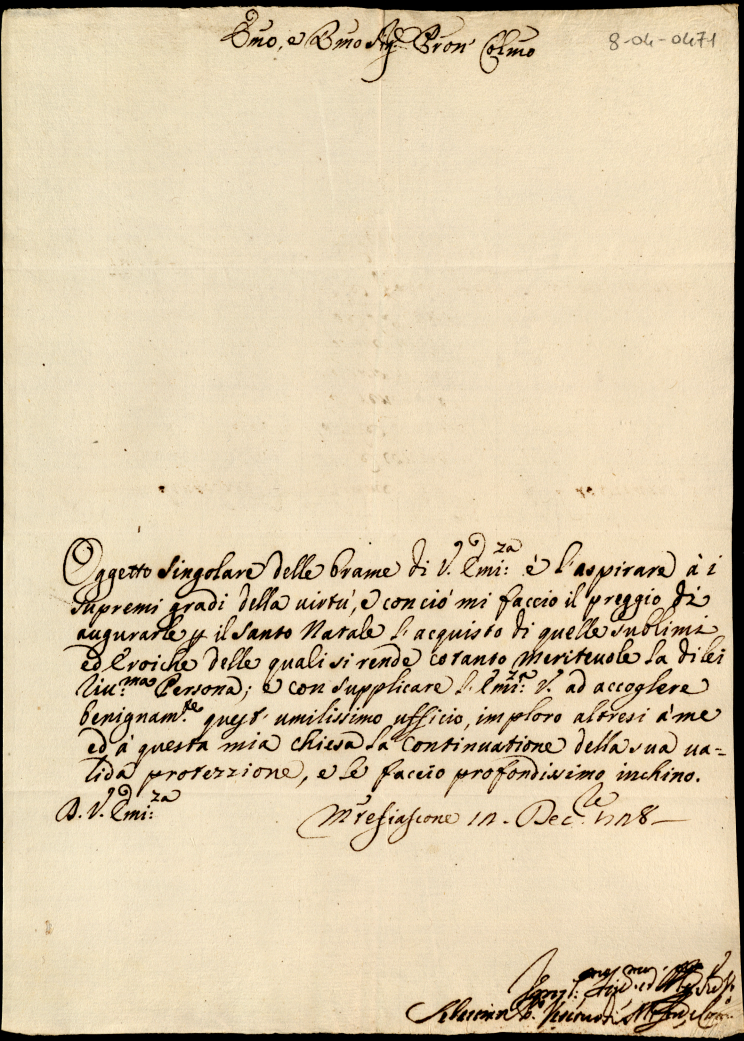 Emo, e Rmo Sig.r Pron' Colmo
8-04-0471
Oggetto singolare delle brame di V. Emi:za è l'aspirare à i
supremi gradi della virtù, e con ciò mi faccio il preggio di
augurarle p il santo Natale l'acquisto di quelle sublimi
ed Eroiche delle quali si rende cotanto meritevole la di lei
Riu.ma Persona; e con supplicare l'Emi:za V. ad accogliere
benignam.te quest' umilissimo ufficio, imploro altresi à me
ed à questa mia chiesa la continuatione della sua ua-
lida protezzione, e le faccio profondissimo inchino.
D. V. Emi:za
Mtefiascone 12. Dec.